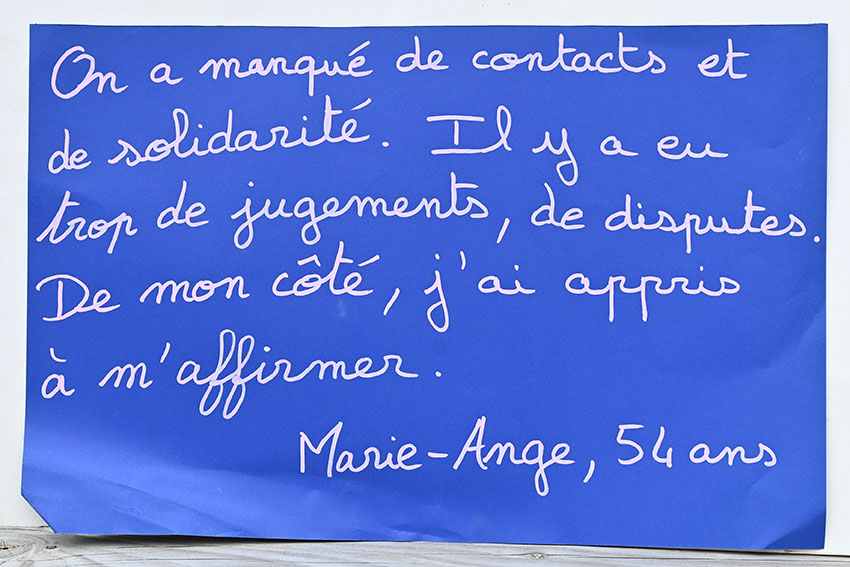 On a manqué de contacts et
de solidarité. Il y a eu
trop de jugements, de disputes.
De mon côté, j'ai appris
à m'affirmer.
Marie-Ange, 54 ans